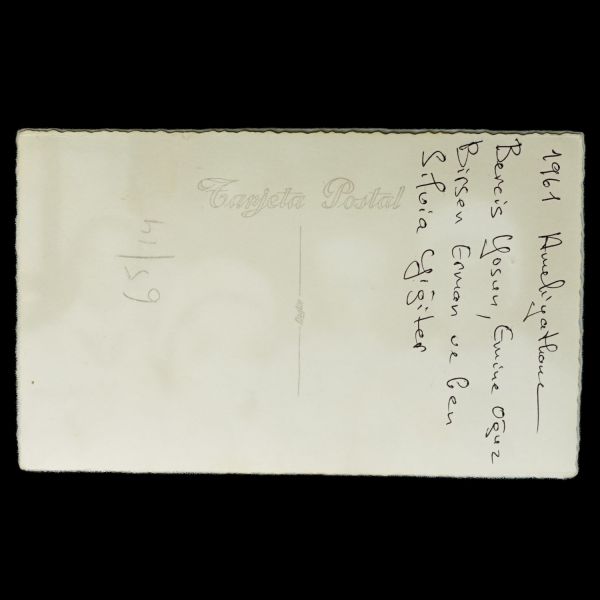 Tarjeta Postal
1961 Ameliyathane
Bercis Yosun, Emine Oğuz
Birsen Erman ve ben
Silvia Yiğiter
65/14